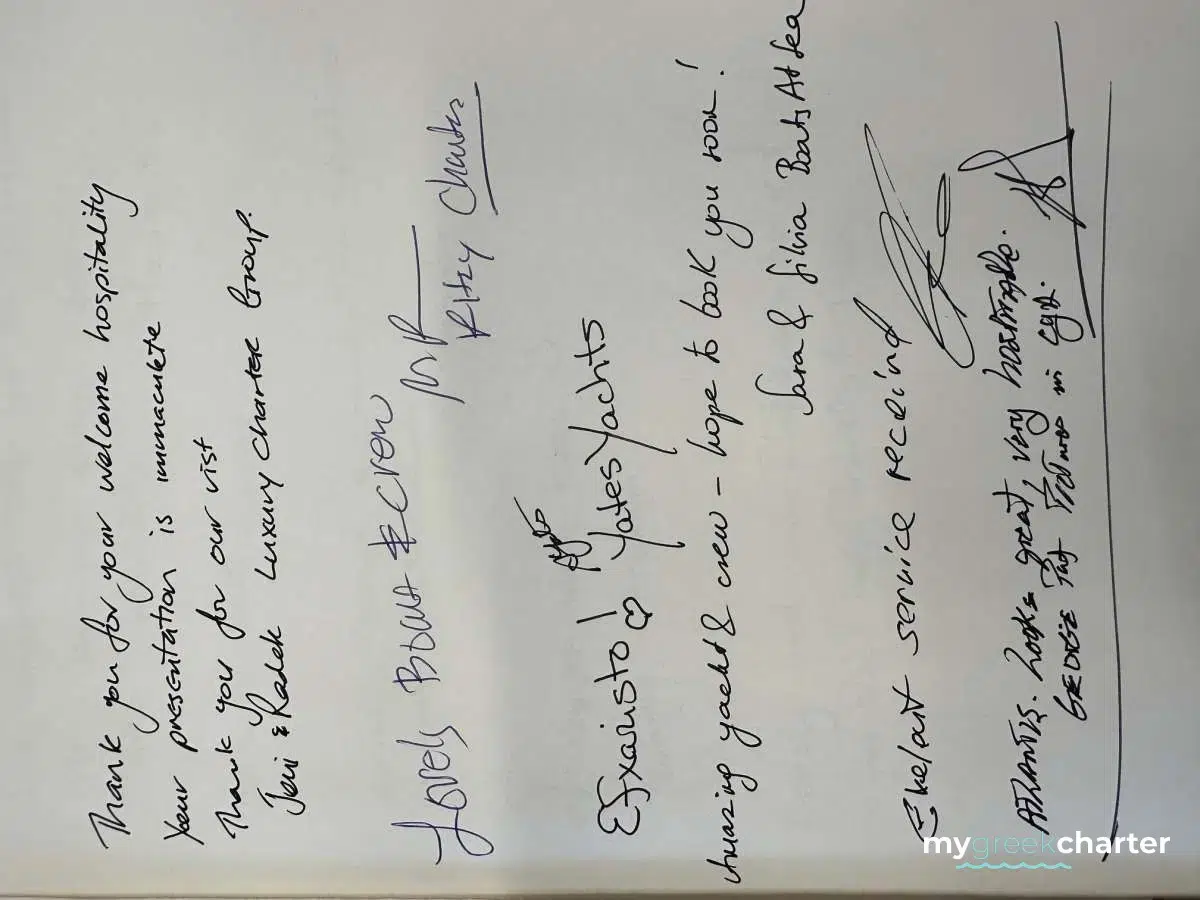 Thank you for your welcome hospitality
Your presentation is immaculete
Thank you for our vist
Jeni & Radek Luxury Charter Group.
Lovely Boat & Crew
Ritzy Charters
Efxaristo!
Yates Yachts
Amazing yacht & crew – hope to book you soon!
Sara & Silvia Boats At Sea
service received
ATLANTIS. Looks great, Very hospitable.
mygreekcharter